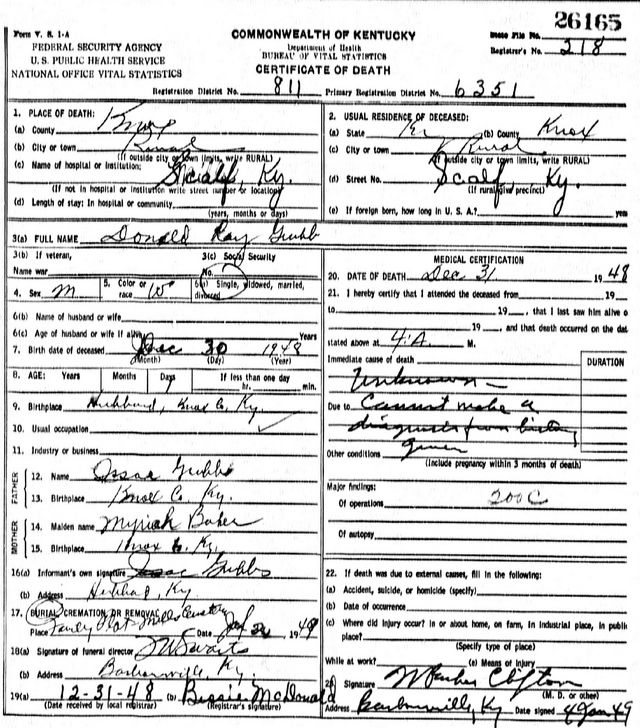 26165
Form V. S. 1-A
COMMONWEALTH OF KENTUCKY
State File No.
FEDERAL SECURITY AGENCY
Department of Health
Registrar's No. 218
U. S. PUBLIC HEALTH SERVICE
BUREAU OF VITAL STATISTICS
NATIONAL OFFICE VITAL STATISTICS
CERTIFICATE OF DEATH
Registration District No. 811 Primary Registration District No. 6351
1. PLACE OF DEATH:
(a) County Knox
(b) City or town Rural
(If outside city or town limits, write RURAL)
(c) Name of hospital or institution:
Scalf, Ky.
(If not in hospital or institution write street number or location)
(d) Length of stay: In hospital or community
(years, months or days)
2. USUAL RESIDENCE OF DECEASED:
(a) State Ky (b) County Knox
(c) City or town Rural
(If outside city or town limits, write RURAL)
(d) Street No. Scalf, Ky.
(If rural give precinct)
(e) If foreign born, how long in U. S. A.? years
3(a) FULL NAME Donald Ray Grubb
3(b) If veteran,
Name war
3(c) Social Security
No.
4. Sex M 5. Color or race W 6(a) Single, widowed, married, divorced
6(b) Name of husband or wife
6(c) Age of husband or wife if alive Years
7. Birth date of deceased Dec 30 1948
(Month) (Day) (Year)
8. AGE: Years Months Days If less than one day
1 hr. min.
9. Birthplace Hubbard, Knox Co, Ky.
10. Usual occupation
11. Industry or business
FATHER
12. Name Grubbs
13. Birthplace Knox Co. Ky.
MOTHER
14. Maiden name Myriah Baker
15. Birthplace Knox Co. Ky.
16(a) Informant's own signature Grubbs
(b) Address Ky
17. BURIAL, CREMATION, OR REMOVAL
Place Mills Date 1949
18(a) Signature of funeral director
(b) Address Barbourville, Ky.
19(a) 12-31-48 (b) Bessie McDonald
(Date received by local registrar) (Registrar's signature)
MEDICAL CERTIFICATION
20. DATE OF DEATH Dec 31 1948
21. I hereby certify that I attended the deceased from 19
to 19, that I last saw him alive o
19, and that death occurred on the dat
stated above at 4 A M.
Immediate cause of death
DURATION
Unknown -
Due to Cannot make a
diagnosis from history
given
Other conditions
(Include pregnancy within 3 months of death)
Major findings:
Of operations 200C
Of autopsy
22. If death was due to external causes, fill in the following:
(a) Accident, suicide, or homicide (specify)
(b) Date of occurrence
(c) Where did injury occur? In or about home, on farm, in industrial place, in public
place?
(Specify type of place)
While at work? (e) Means of injury
23. Signature Clifton
(M. D. or other)
Address Barbourville, Ky Date signed 4 Jan 49